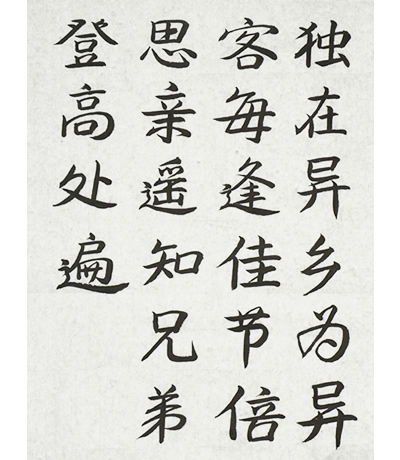 独在异乡为异
客每逢佳节倍
思亲遥知兄弟
登高处遍